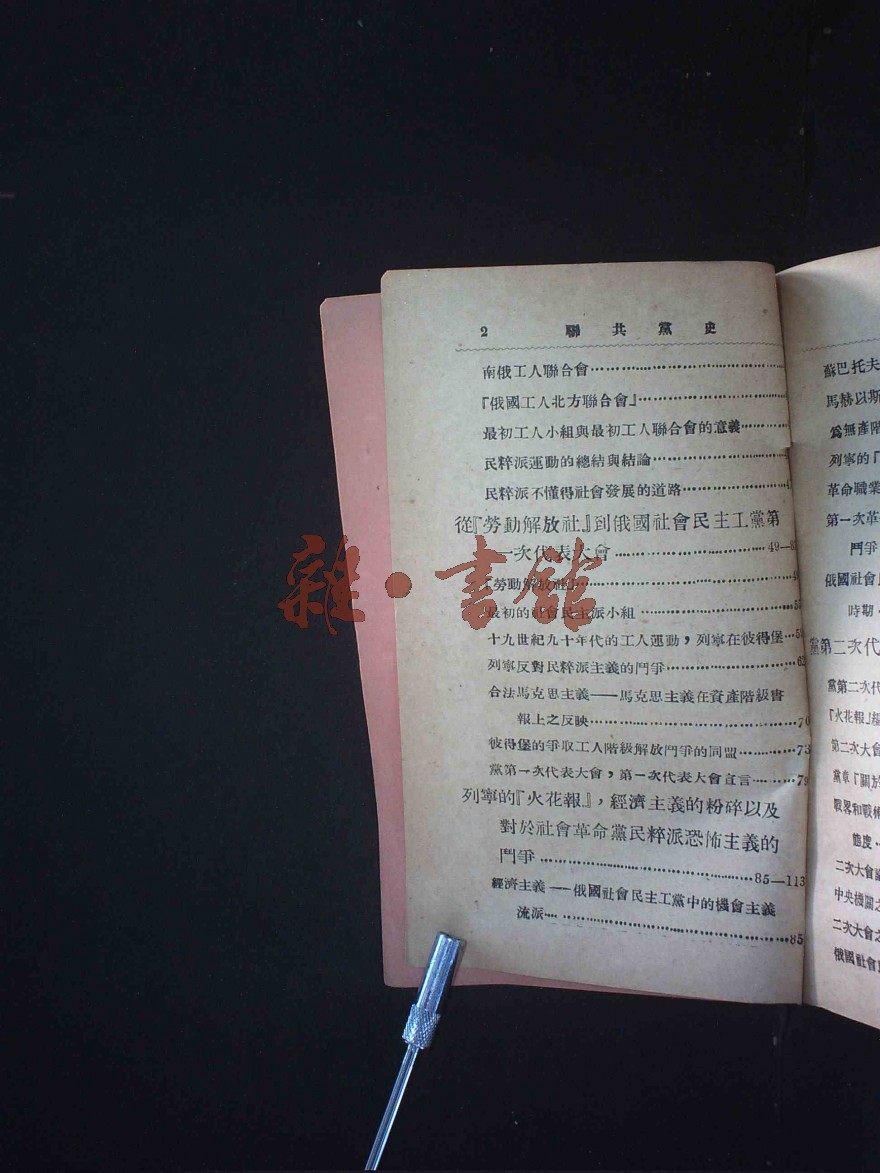 2 聯共黨史
南俄工人聯合會
『俄國工人北方聯合會』
最初工人小組與最初工人聯合會的意義
民粹派運動的總結與結論
民粹派不懂得社會發展的道路
從『勞動解放社』到俄國社會民主工黨第
一次代表大會 49—8
『勞動解放社』
最初的社會民主派小組
十九世紀九十年代的工人運動,列寧在彼得堡
列寧反對民粹派主義的鬥爭
合法馬克思主義——馬克思主義在資產階級書
報上之反映 70
彼得堡的爭取工人階級解放鬥爭的同盟 73
黨第一次代表大會,第一次代表大會宣言 79
列寧的『火花報』,經濟主義的粉碎以及
對於社會革命黨民粹派恐怖主義的
鬥爭 85—113
經濟主義——俄國社會民主工黨中的機會主義
流派 85
雜·書館
蘇巴托夫
馬赫以斯
為無產階
列寧的『
革命職業
第一次革
鬥爭
俄國社會民
時期
黨第二次代
黨第二次代
『火花報』
第二次大會
黨章『關於
戰略和戰
態度
二次大會
中央機關之
二次大會之
俄國社會